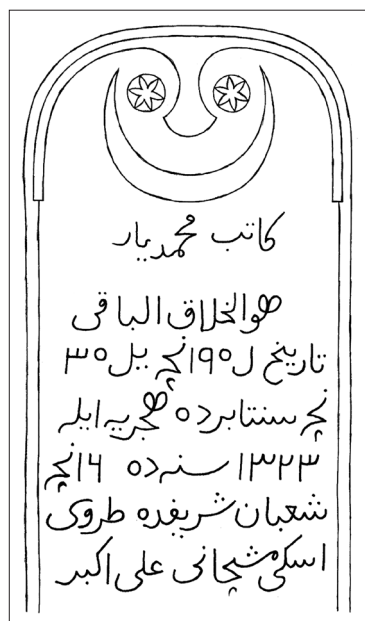 كاتب محمديار
هوالخلاق الباقی
تاريخ ل١٩٥نچ يل ٣٥
نچ سنتابرده هجريه ايله
١٣٢٣ سنه ده ١٦نچ
شعبان شريفده طروی
اسكی مشچانی علی اكبر